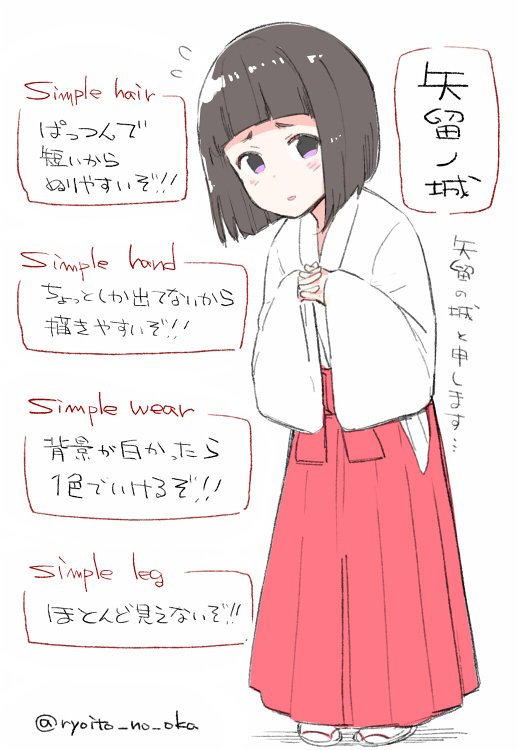 Simple hair
ぱっつんで
短いから
ぬりやすいぞ!!
Simple hand
ちょっとしか出てないから
描きやすいぞ!!
Simple wear
背景が白かったら
1色でいけるぞ!!
Simple leg
ほとんど見えないぞ!!
矢留ノ城
矢留の城と申します…
@ryoito_no_oka